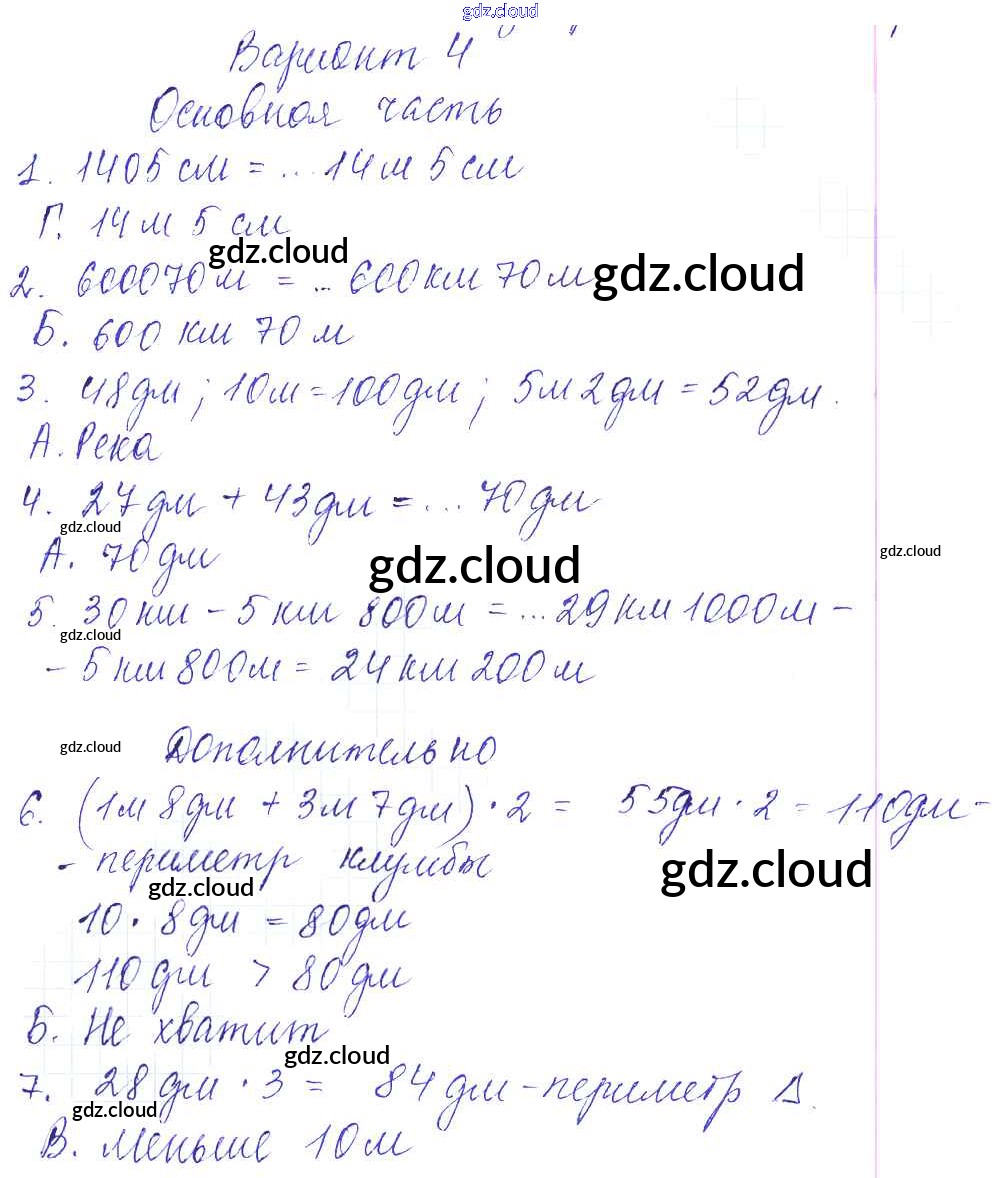 gdz.cloud
Вариант 4
Основная часть
1. 1405 см = ... 14 м 5 см
Г. 14 м 5 см
gdz.cloud
2. 600070 м = ... 600 км 70 м
gdz.cloud
Б. 600 км 70 м
3. 48 дм ; 10 м = 100 дм ; 5 м 2 дм = 52 дм.
А. Река
4. 27 дм + 43 дм = ... 70 дм
gdz.cloud
А. 70 дм
gdz.cloud
gdz.cloud
5. 30 км - 5 км 800 м = ... 29 км 1000 м -
gdz.cloud
- 5 км 800 м = 24 км 200 м
Дополнительно
gdz.cloud
6. (1 м 8 дм + 3 м 7 дм) · 2 = 55 дм · 2 = 110 дм -
- периметр клумбы
gdz.cloud
gdz.cloud
10 · 8 дм = 80 дм
110 дм > 80 дм
Б. Не хватит
gdz.cloud
7. 28 дм · 3 = 84 дм - периметр Δ.
gdz.cloud
В. Меньше 10 м